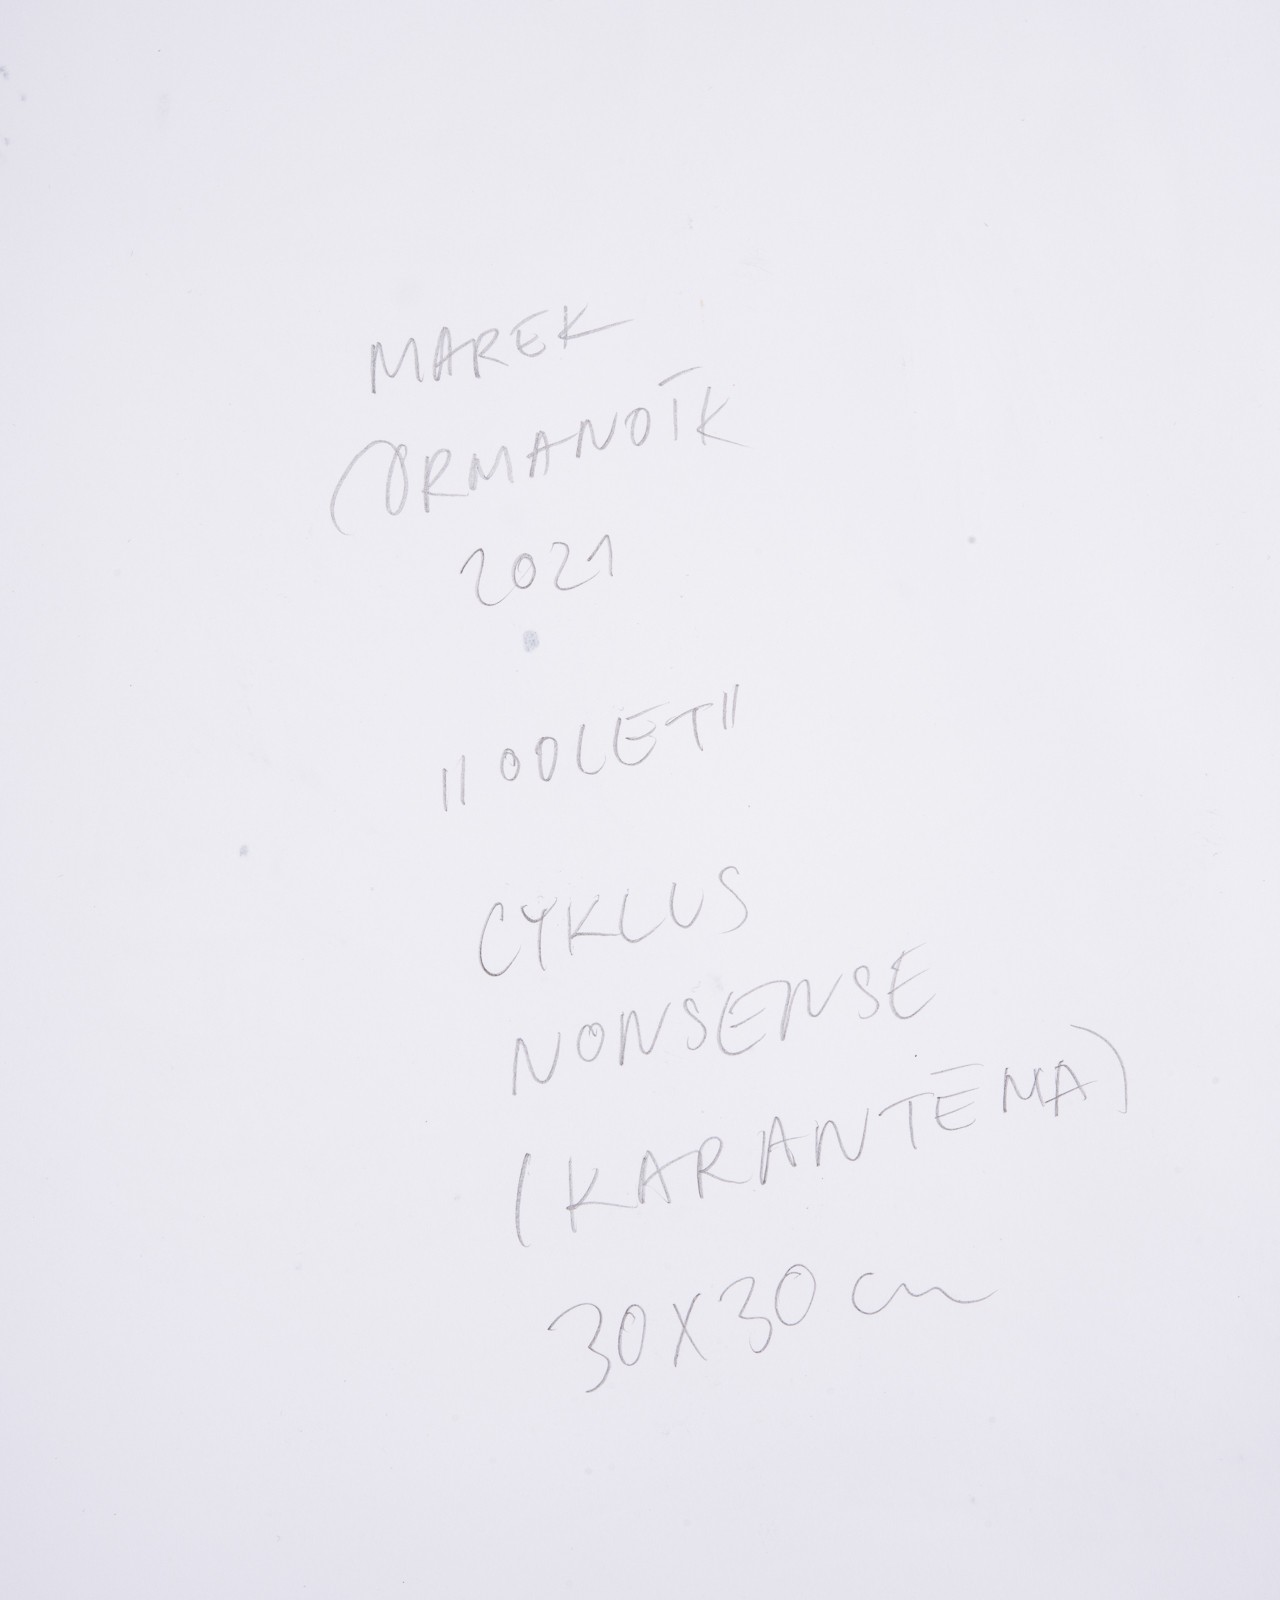 MAREK
ORMANDÍK
2021
"ODLET"
CYKLUS
NONSENSE
(KARANTÉNA)
30X30 cm